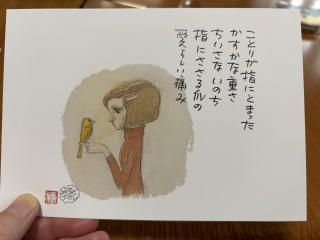 ことりが指にとまった
かすかな重さ
ちいさな いのち
指にささる爪の
愛らしい痛み